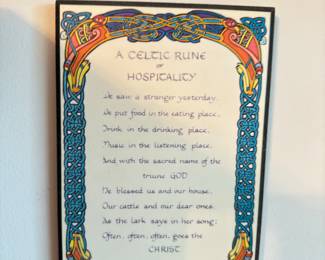 A CELTIC RUNE
OF
HOSPITALITY
We saw a stranger yesterday,
We put food in the eating place,
Drink in the drinking place,
Music in the listening place,
And with the sacred name of the
triune GOD
He blessed us and our house,
Our cattle and our dear ones.
As the lark says in her song:
Often, often, often, goes the
CHRIST